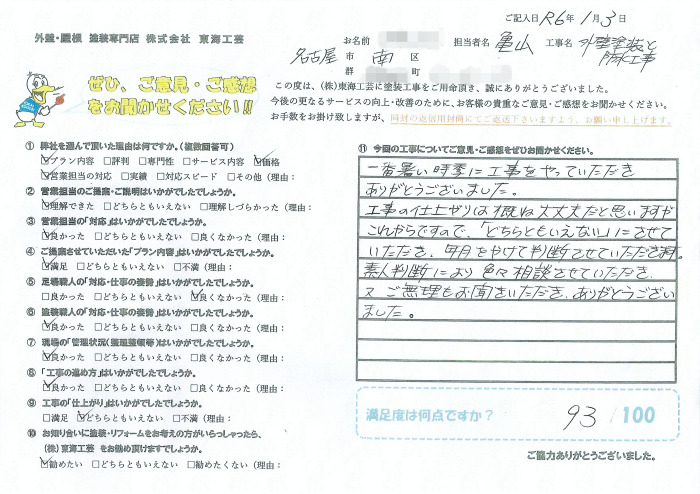 ご記入日R6年1月3日
外壁・屋根 塗装専門店 株式会社 東海工芸
お名前 担当者名 亀山 工事名 外壁塗装と防水工事
名古屋市 南区
郡 町
ぜひ、ご意見・ご感想
をお聞かせください!!
この度は、(株)東海工芸に塗装工事をご用命頂き、誠にありがとうございました。
今後の更なるサービスの向上・改善のために、お客様の貴重なご意見・ご感想をお聞かせください。
お手数をお掛け致しますが、同封の返信用封筒にてご返送下さいますよう、お願い申し上げます。
① 弊社を選んで頂いた理由は何ですか。(複数回答可)
☑プラン内容 □評判 □専門性 □サービス内容 ☑価格
☑営業担当の対応 □実績 □対応スピード □その他(理由:
② 営業担当のご提案・ご説明はいかがでしたでしょうか。
☑理解できた □どちらともいえない □理解しづらかった(理由:
③ 営業担当の「対応」はいかがでしたでしょうか。
☑良かった □どちらともいえない □良くなかった(理由:
④ ご提案させていただいた「プラン内容」はいかがでしたでしょうか。
☑満足 □どちらともいえない □不満(理由:
⑤ 足場職人の「対応・仕事の姿勢」はいかがでしたでしょうか。
□良かった □どちらともいえない ☑良くなかった(理由:
⑥ 塗装職人の「対応・仕事の姿勢」はいかがでしたでしょうか。
☑良かった □どちらともいえない □良くなかった(理由:
⑦ 現場の「管理状況(整理整頓等)はいかがでしたでしょうか。
☑良かった □どちらともいえない □良くなかった(理由:
⑧ 「工事の進め方」はいかがでしたでしょうか。
☑良かった □どちらともいえない □良くなかった(理由:
⑨ 工事の「仕上がり」はいかがでしたでしょうか。
□満足 ☑どちらともいえない □不満(理由:
⑩ お知り合いに塗装・リフォームをお考えの方がいらっしゃったら、
(株)東海工芸 をお勧め頂けますでしょうか。
☑勧めたい □どちらともいえない □勧めたくない(理由:
⑪ 今回の工事についてご意見・ご感想をぜひお聞かせください。
一番暑い時季に工事をやっていただき
ありがとうございました。
工事の仕上がりは概ね大丈夫だと思いますが
これからですので、「どちらともいえない」にさせて
いただき、年月をかけて判断させていただきます。
素人判断により色々相談させていただき、
又ご無理もお聞きいただき、ありがとうござい
ました。
満足度は何点ですか? 93/100
ご協力ありがとうございました。